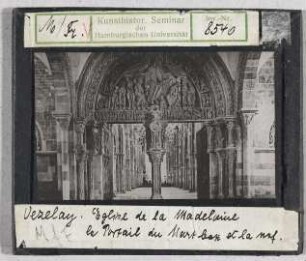 Mo/Fr.
Kunsthistor. Seminar
der
Hamburgischen Universität
Inv.-Nr.
8540
Vezelay. Eglise de la Madeleine
le Portail du Nartex et la nef.